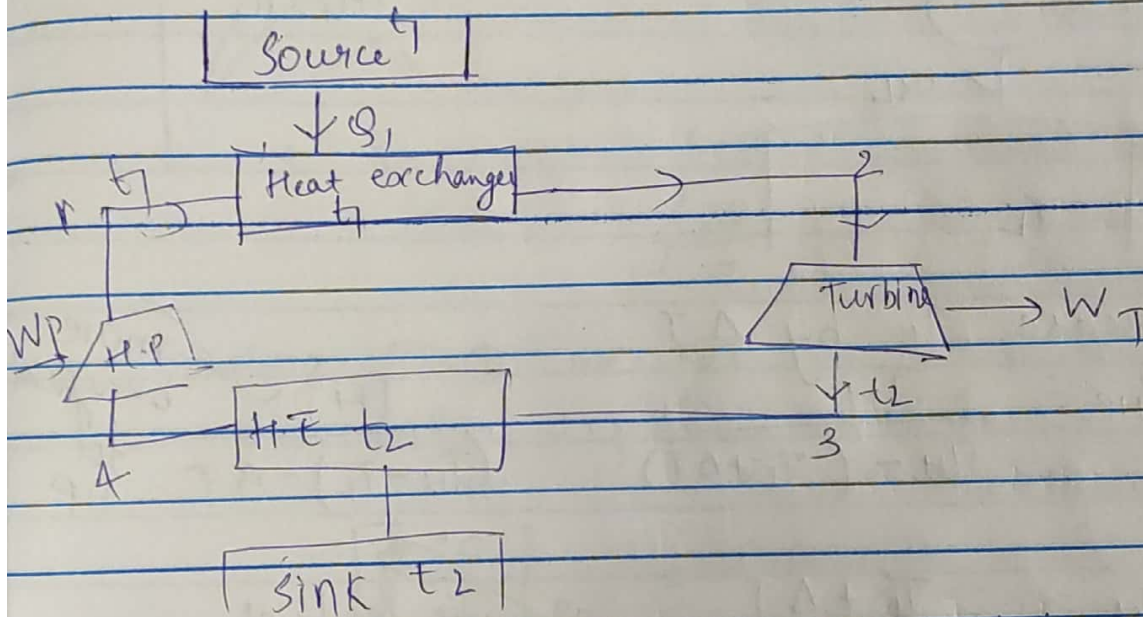 Source t1
Q1
t1
1
Heat exchanger
t1
2
Turbine
WT
WP
H.P
t2
HE t2
3
4
Sink t2